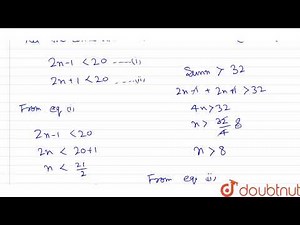 2n-1 < 20 -----(i)
2n+1 < 20 -----(ii)
From eq (i)
2n-1 < 20
2n < 20+1
n < 21/2
Sum > 32
2n-1 + 2n+1 > 32
4n > 32
n > 32/4 8
n > 8
From eq (ii)
doubtnut